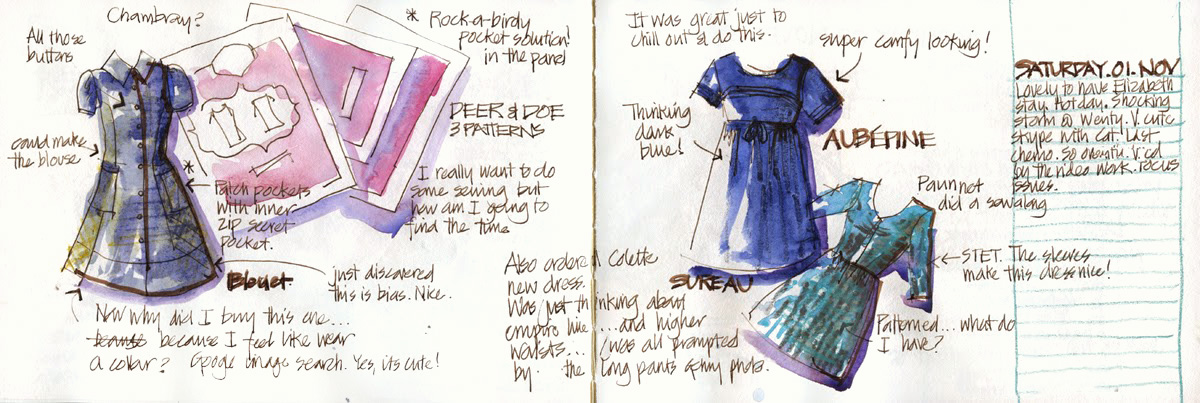 Chambray?
All those
buttons
could make
the blouse
* Rock-a-birdy
pocket solution!
in the panel
DEER & DOE
3 PATTERNS
I really want to do
some sewing but
how am I going to
find the time
*
Patch pockets
with inner
zip secret
pocket.
Bleuet
just discovered
this is bias. Nice.
Now why did I buy this one...
because because I feel like wear
a collar? Google image search. Yes, its cute!
It was great just to
chill out & do this.
super comfy looking!
Thinking
dark
blue!
AUBÉPINE
Also ordered Colette
new dress.
Was just thinking about
empire line ...and higher
waists... was all prompted
by the long pants & my photo.
SUREAU
did a sewalong
STET. The sleeves
make this dress nice!
Patterned... what do
I have?
SATURDAY.01.NOV
Lovely to have Elizabeth
stay. Hot day. Shocking
storm @ Wenty. V. cute
skype with Cat! Last
chemo. So
by the video work. Focus
issues.